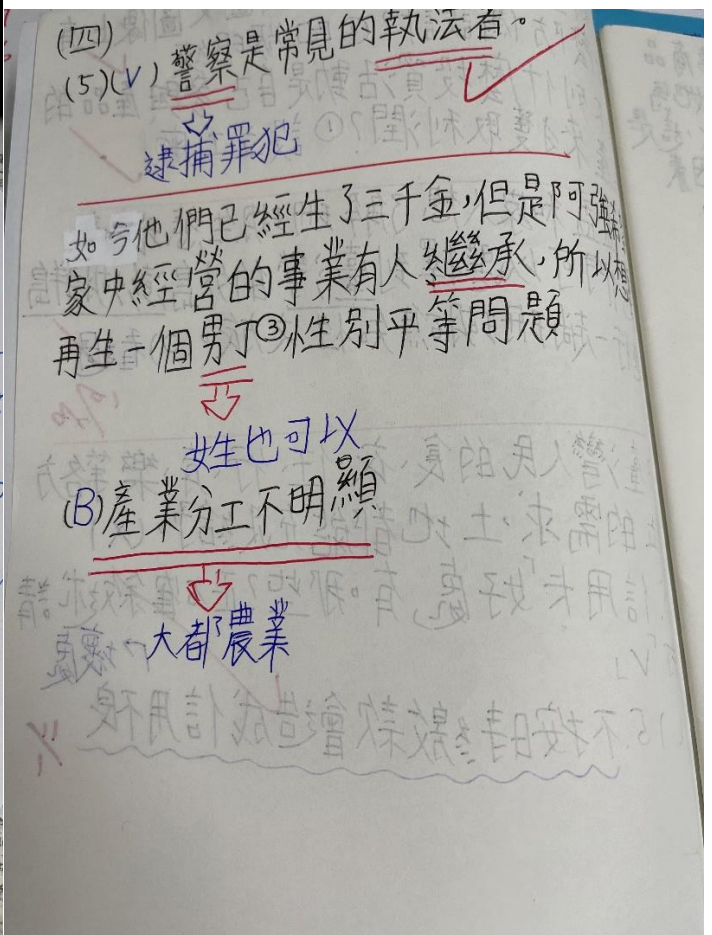 (四)
(5)(V)警察是常見的執法者。
逮捕罪犯
如今他們已經生了三千金,但是阿強
家中經營的事業有人繼承,所以想
再生一個男丁③性別平等問題
女生也可以
(B)產業分工不明顯
大都農業